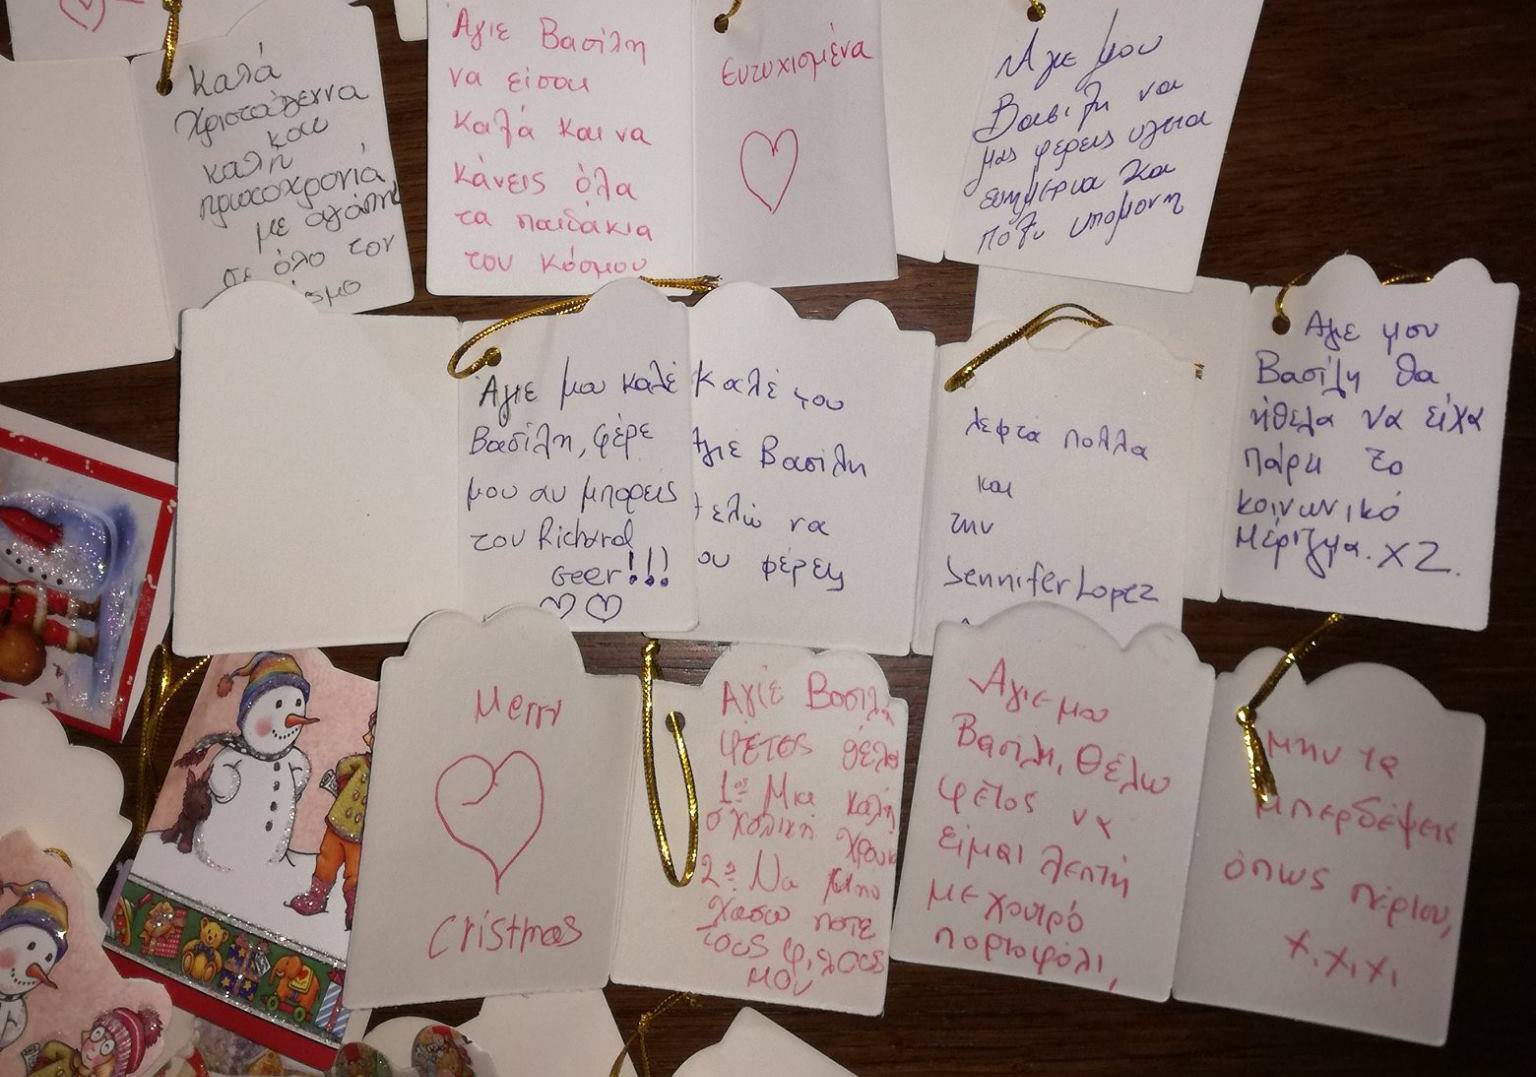 Καλά
Χριστούγεννα
και
καλή
πρωτοχρονιά
με αγάπη
σε όλο τον
Άγιε Βασίλη
να είσαι
καλά και να
κάνεις όλα
τα παιδάκια
του κόσμου
ευτυχισμένα
Αγιε μου
Βασιλη να
μας φέρεις υγεια
ευημερια και
πολυ υπομονη
Άγιε μου καλέ
Βασίλη, φέρε
μου αν μπορεις
τον Richard
Geer!!!
Καλέ μου
Άγιε Βασίλη
να
φέρεις
λεφτά πολλα
και
την
Jennifer Lopez
Αγιε μου
Βασίλη θα
ήθελα να είχα
πάρει το
κοινωνικό
Μέρισμα. Χ2.
Merry
Cristmas
Αγιέ Βασιλη
φετος θέλω
1ον Μια καλή
σχολική χρονια
2ον Να μην
χασω ποτε
τους φίλους
μου
Αγιε μου
Βασίλη, Θέλω
φέτος να
είμαι λεπτή
με χοντρό
πορτοφόλι,
μην τα
μπερδέψεις
όπως πέρισυ,
χ,χι,χι